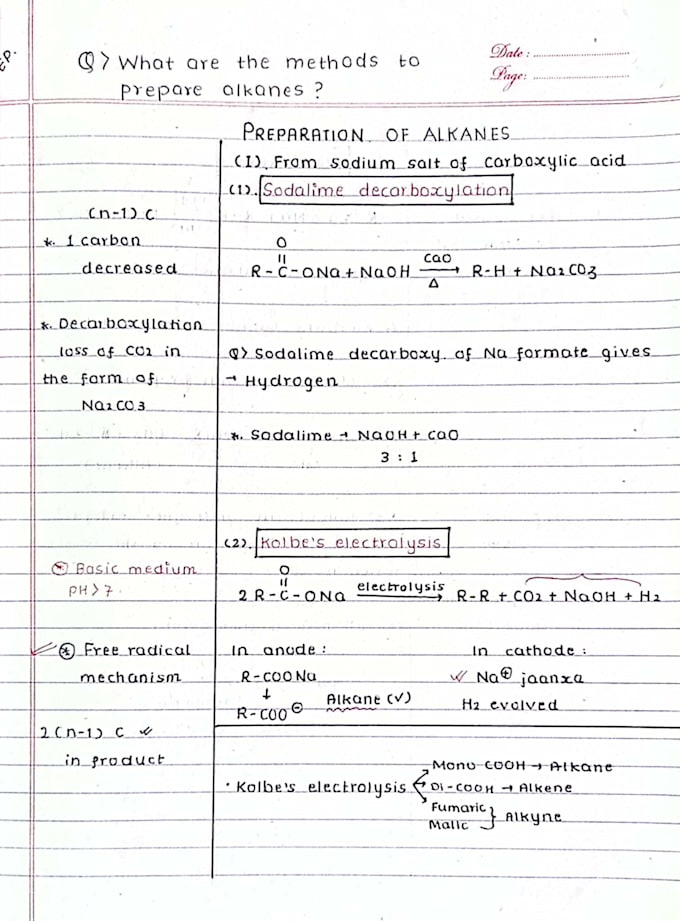 EP.
Q> What are the methods to
prepare alkanes ?
Date : ..............................
Page: ..............................
PREPARATION OF ALKANES
(I). From sodium salt of carboxylic acid
(1). Sodalime decarboxylation
(n-1) C
*. 1 carbon
decreased
O
||
R - C - ONa + NaOH CaO → Δ R-H + Na2CO3
*. Decarboxylation
loss of CO2 in
the form of
Na2CO3
Q> Sodalime decarboxy. of Na formate gives
→ Hydrogen
*. Sodalime → NaOH + CaO
3 : 1
(2). Kolbe's electrolysis
* Basic medium
PH > 7.
O
||
2 R - C - ONa electrolysis → R-R + CO2 + NaOH + H2
* Free radical
mechanism
In anode :
R-COONa
↓
R-COO⊖ Alkane (√)
In cathode :
√ Na⊕ jaanxa
H2 evolved
2(n-1) C √
in product
· Kolbe's electrolysis
Mono COOH → Alkane
Di-COOH → Alkene
Fumaric
Malic } Alkyne